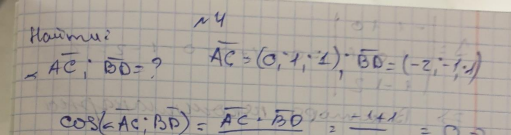 №4
Найти:
∠ AC; BD = ? AC = (0; -1; -1); BD = (-2; -1; 1)
cos(∠AC; BD) = AC · BD =